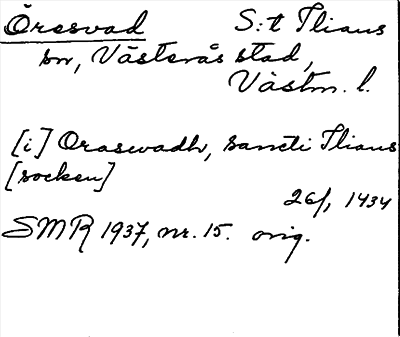 Öresvad S:t Ilians
sn, Västerås stad,
Västm. l.
[i] Oraswadh, sancti Ilians
[socken]
26/, 1434
SMR 1937, nr. 15. orig.